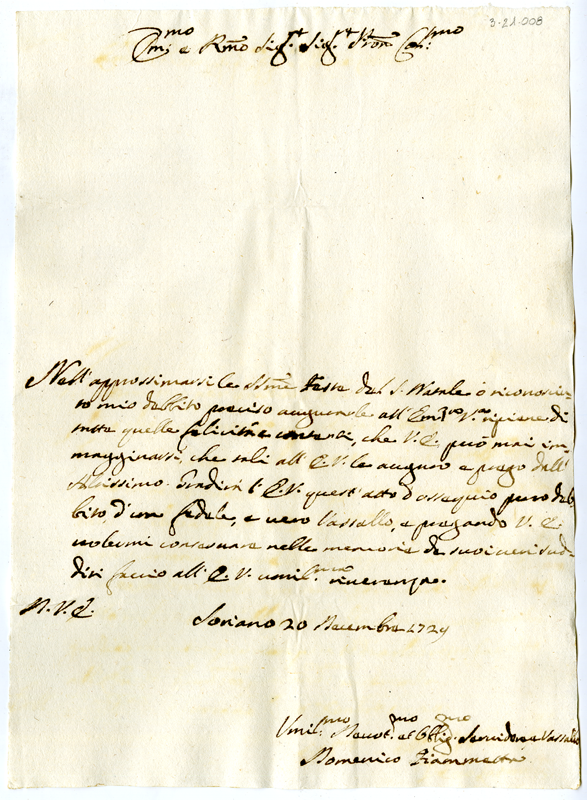 3-21-008
Emmo e Rmo Sigr. Sigr. Pron Colmo
Nell'approssimarsi le Sme Feste del S. Natale ò riconosciu=
to mio debbito preciso augurarle all'Emza Vra ripiene di
tutte quelle felicità e contenti, che V. E. può mai im=
magginarsi, che tali all'E. V. le auguro e prego dall'
Altissimo. Gradirà l'E. V. quest'atto d'ossequio puro deb=
bito, d'un fedele, e vero Vassallo, e pregando V. E.
volermi conservare nelle memorie de suoi veri sud=
diti faccio all'E. V. umilma riverenza.
D. V. E.
Soriano 20 Decembre 1729
Umilmo Devotmo et Obbligmo Servidore e Vassallo
Domenico Fiammetta